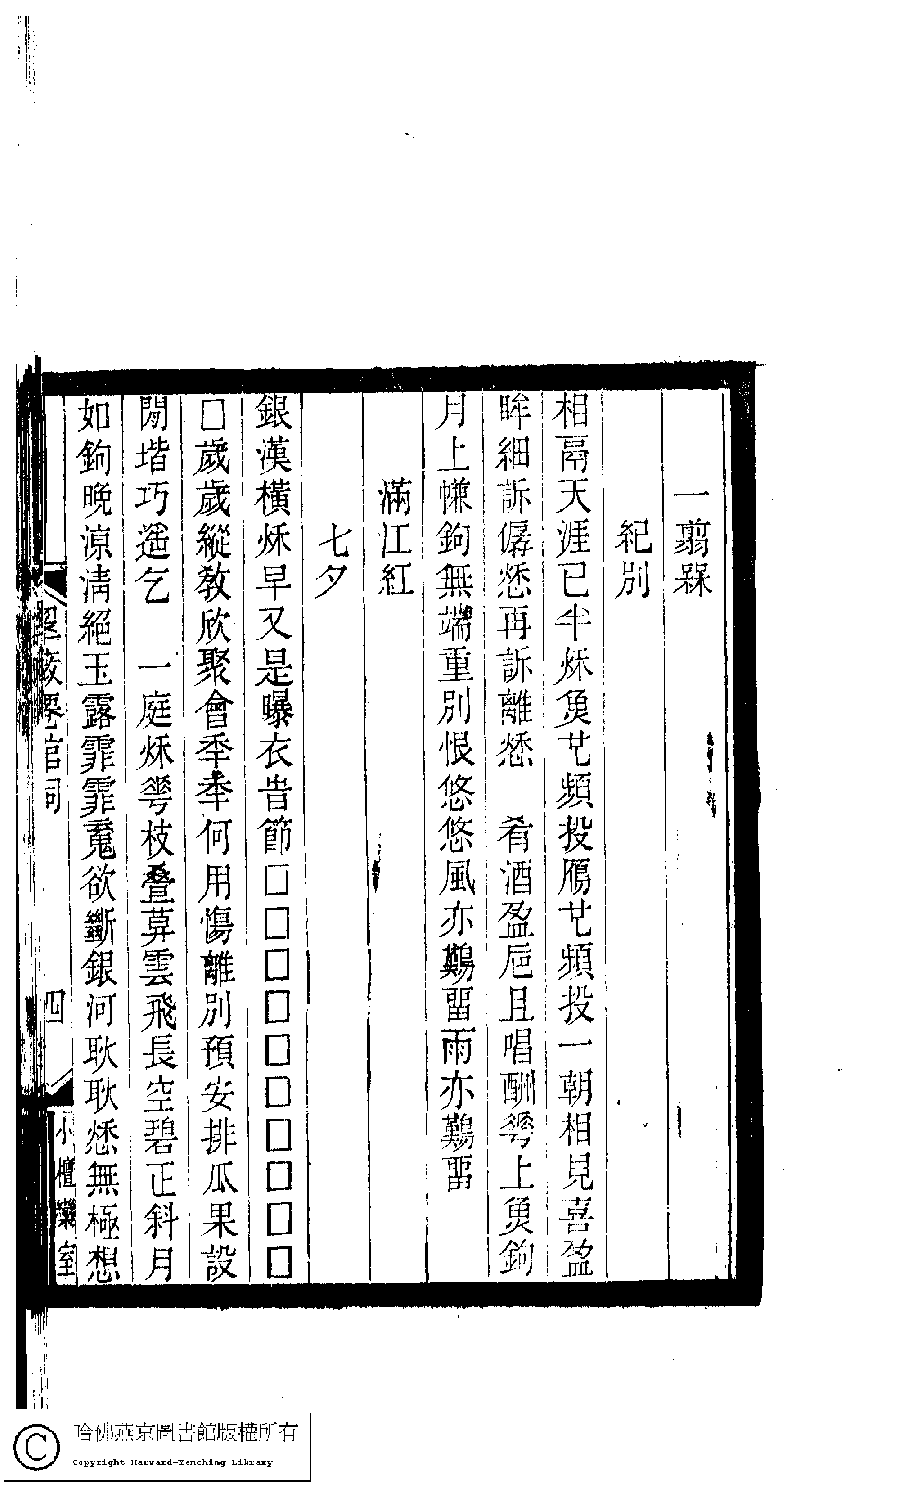 一翦槑
紀別
相鬲天涯已半秌魚也頻投鴈也頻投一朝相見喜盈
眸細訴僝愁再訴離愁　肴酒盈卮且唱酬雩上魚鉤
月上㡘鉤無端重別恨悠悠風亦囏畱雨亦囏畱
滿江紅
七夕
銀漢橫秌早又是曝衣旹節□□□□□□□□□□
□歲歲縱敎欣聚會秊秊何用傷離別預安排瓜果設
閒堦巧遥乞　一庭秌雩枝疊萛雲飛長空碧正斜月
如鉤晚涼淸絕玉露霏霏䰟欲斷銀河耿耿愁無極想
四
小檀欒室
哈佛燕京圖書館版權所有
Copyright Harvard-Yenching Library